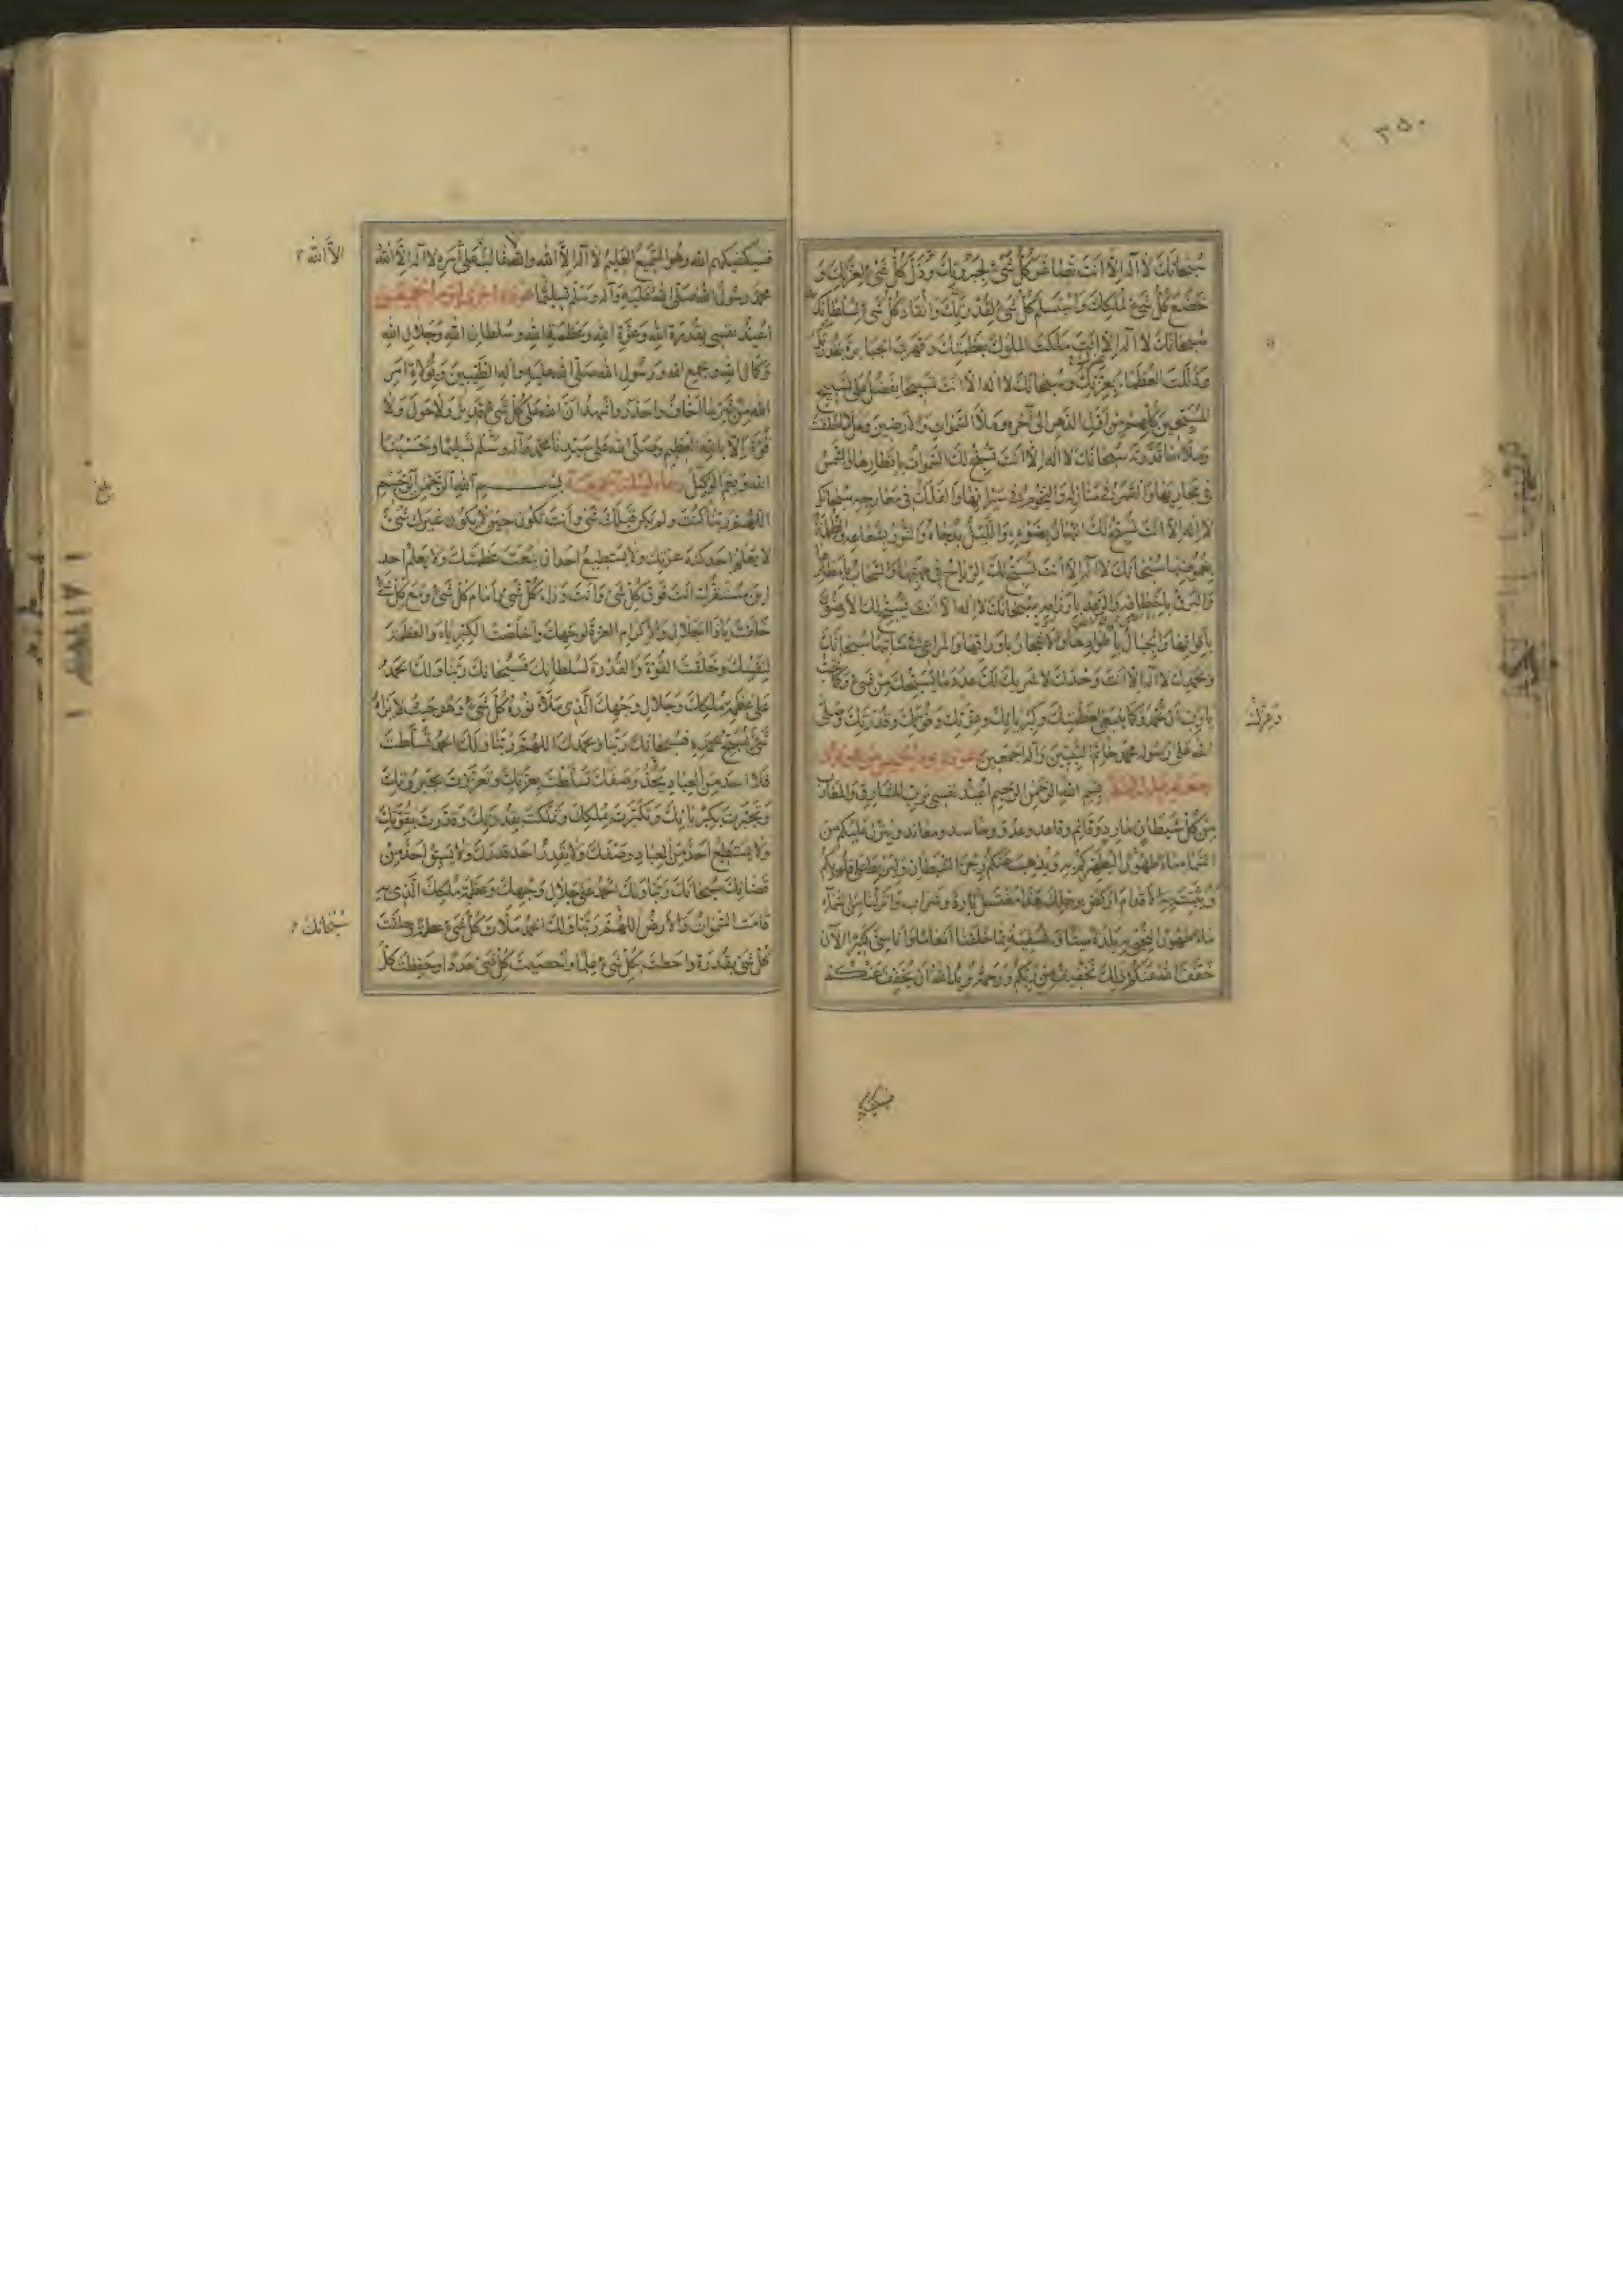 ٣٥٠
سُبْحانَكَ لا اله الّا انْتَ تَصاغَرَ كُلُّ شَيْءٍ لِجَبَرُوتِكَ وَذَلَّ كُلُّ شَيْءٍ لِعِزَّتِكَ وَ
خَضَعَ كُلُّ شَيْءٍ لِمُلْكِكَ وَاسْتَسْلَمَ كُلُّ شَيْءٍ لِقُدْرَتِكَ وَانْقادَ كُلُّ شَيْءٍ لِسُلْطانِكَ
سُبْحانَكَ لا اله الّا انْتَ مَلَكْتَ المُلُوكَ بِعَظَمَتِكَ وَقَهَرْتَ الجَبابِرَةَ بِقُدْرَتِكَ
وَذَلَّلْتَ العُظَماءَ بِعِزَّتِكَ وَسُبْحانَكَ لا اله الّا انْتَ تَسْبيحًا يَفْضُلُ عَلى تَسْبيحِ
المُسَبِّحينَ كُلِّهِمْ مِنْ اَوَّلِ الدَّهْرِ اِلى آخِرِهِ وَمِلْأَ السَّمواتِ وَالاَرَضينَ وَمِلْأَ ما خَلَقْتَ
وَمِلْأَ ما قَدَّرْتَ سُبْحانَكَ لا اله الّا انْتَ تُسَبِّحُ لَكَ السَّمواتُ بِاَقْطارِها وَالشَّمْسُ
في مَجاريها وَالقَمَرُ في مَنازِلِهِ وَالنُّجُومُ في سَيَرانِها وَالفَلَكُ في مَعارِجِهِ سُبْحانَكَ
لا اله الّا انْتَ يُسَبِّحُ لَكَ النَّهارُ بِضَوْئِهِ وَاللَّيْلُ بِدُجاهُ وَالنُّورُ بِشُعاعِهِ وَالظُّلْمَةُ
بِغُمُوضِها سُبْحانَكَ لا اله الّا انْتَ تُسَبِّحُ لَكَ الرِّياحُ في مَهَبِّها وَالسَّحابُ بِاَمْطارِها
وَالبَرْقُ بِاَخْطافِهِ وَالرَّعْدُ بِاِرْزامِهِ سُبْحانَكَ لا اله الّا انْتَ تُسَبِّحُ لَكَ الاَرْضُ
بِاَقْواتِها وَالجِبالُ بِاَطْوادِها وَالاَشْجارُ بِاَوْراقِها وَالمَراعي في مَنابِتِها سُبْحانَكَ
وَبِحَمْدِكَ لا اله الّا انْتَ وَحْدَكَ لا شَريكَ لَكَ عَدَدَ ما يُسَبِّحُكَ مِنْ شَيْءٍ وَكَما تُحِبُّ
يا رَبِّ اَنْ تُحْمَدَ وَكَما يَنْبَغي لِعَظَمَتِكَ وَكِبْرِيائِكَ وَعِزَّتِكَ وَقُوَّتِكَ وَقُدْرَتِكَ وَصَلَّى
وَعِزَّتِكَ
اللهُ عَلى رَسُولِهِ مُحَمَّدٍ خاتَمِ النَّبِيّينَ وَآلِهِ اَجْمَعينَ عوذة يوم الخميس
بِسْمِ اللهِ الرَّحْمنِ الرَّحيمِ اُعيذُ نَفْسي بِرَبِّ المَشارِقِ وَالمَغارِبِ
مِنْ كُلِّ شَيْطانٍ مارِدٍ وَقائِمٍ وَقاعِدٍ وَعَدُوٍّ وَحاسِدٍ وَمُعانِدٍ وَيُنَزِّلُ عَلَيْكُمْ مِنَ
السَّماءِ ماءً طَهُورًا لِيُطَهِّرَكُمْ بِهِ وَيُذْهِبَ عَنْكُمْ رِجْزَ الشَّيْطانِ وَلِيَرْبِطَ عَلى قُلُوبِكُمْ
وَيُثَبِّتَ بِهِ الاَقْدامَ اُرْكُضْ بِرِجْلِكَ هذا مُغْتَسَلٌ بارِدٌ وَشَرابٌ وَاَنْزَلْنا مِنَ السَّماءِ
ماءً طَهُورًا لِنُحْيِيَ بِهِ بَلْدَةً مَيْتًا وَنُسْقِيَهُ مِمّا خَلَقْنا اَنْعامًا وَاَناسِيَّ كَثيرًا الآنَ
خَفَّفَ اللهُ عَنْكُمْ ذلِكَ تَخْفيفٌ مِنْ رَبِّكُمْ وَرَحْمَةٌ يُريدُ اللهُ اَنْ يُخَفِّفَ عَنْكُمْ
فسيكفيكهم
فَسَيَكْفيكَهُمُ اللهُ وَهُوَ السَّميعُ العَليمُ لا اله اِلّا اللهُ وَاللهُ غالِبٌ عَلى اَمْرِهِ لا اله اِلّا اللهُ
اِلّا اللهُ
مُحَمَّدٌ رَسُولُ اللهِ صَلَّى اللهُ عَلَيْهِ وَآلِهِ وَسَلَّمَ تَسْليمًا عوذة اخرى ليوم الخميس
اُعيذُ نَفْسي بِقُدْرَةِ اللهِ وَعِزَّةِ اللهِ وَعَظَمَةِ اللهِ وَسُلْطانِ اللهِ وَجَلالِ اللهِ
وَكَمالِ اللهِ وَبِجَمْعِ اللهِ وَرَسُولِ اللهِ صَلَّى اللهُ عَلَيْهِ وَآلِهِ الطَّيِّبينَ وَبِوُلاةِ اَمْرِ
اللهِ مِنْ شَرِّ ما اَخافُ وَاَحْذَرُ وَاَشْهَدُ اَنَّ اللهَ عَلى كُلِّ شَيْءٍ قَديرٌ وَلا حَوْلَ وَلا
قُوَّةَ اِلّا بِاللهِ العَظيمِ وَصَلَّى اللهُ عَلى سَيِّدِنا مُحَمَّدٍ وَآلِهِ وَسَلَّمَ تَسْليمًا وَحَسْبُنَا
اللهُ وَنِعْمَ الوَكيلُ دعاء ليلة الجمعة بِسْمِ اللهِ الرَّحْمنِ الرَّحيمِ
اللّهُمَّ رَبَّنا كُنْتَ وَلَمْ يَكُنْ قَبْلَكَ شَيْءٌ وَاَنْتَ تَكُونُ حينَ لا يَكُونُ غَيْرَكَ شَيْءٌ
لا يَعْلَمُ اَحَدٌ كُنْهَ عِزَّتِكَ وَلا يَسْتَطيعُ اَحَدٌ اَنْ يَنْعَتَ عَظَمَتَكَ وَلا يَعْلَمُ اَحَدٌ
اَيْنَ مُسْتَقَرُّكَ اَنْتَ فَوْقَ كُلِّ شَيْءٍ وَاَنْتَ وَراءَ كُلِّ شَيْءٍ وَاَمامَ كُلِّ شَيْءٍ وَمَعَ كُلِّ شَيْءٍ
خَلَقْتَ يا ذَا الجَلالِ وَالاِكْرامِ العِزَّةَ لِوَجْهِكَ وَاَخْلَصْتَ الكِبْرِياءَ وَالعَظَمَةَ
لِنَفْسِكَ وَخَلَقْتَ القُوَّةَ وَالقُدْرَةَ لِسُلْطانِكَ فَسُبْحانَكَ رَبَّنا وَلَكَ الحَمْدُ
عَلى عَظَمَةِ مُلْكِكَ وَجَلالِ وَجْهِكَ الَّذي مَلَأَ نُورُهُ كُلَّ شَيْءٍ وَهُوَ حَيْثُ لا يَراهُ
شَيْءٌ يُسَبِّحُ بِحَمْدِهِ فَسُبْحانَكَ رَبَّنا وَبِحَمْدِكَ اللّهُمَّ رَبَّنا وَلَكَ الحَمْدُ تَسَلَّطْتَ
فَلا اَحَدَ مِنَ العِبادِ يَحُدُّ وَصْفَكَ تَسَلَّطْتَ بِعِزَّتِكَ وَتَعَزَّزْتَ بِجَبَرُوتِكَ
وَتَجَبَّرْتَ بِكِبْرِيائِكَ وَتَكَبَّرْتَ بِمُلْكِكَ وَتَمَلَّكْتَ بِقُدْرَتِكَ وَقَدَرْتَ بِقُوَّتِكَ
وَلا يَسْتَطيعُ اَحَدٌ مِنَ العِبادِ وَصْفَكَ وَلا يَقْدِرُ اَحَدٌ قَدْرَكَ وَلا يَسْبِقُ اَحَدٌ مِنْ
قَضائِكَ سُبْحانَكَ رَبَّنا وَلَكَ الحَمْدُ عَلى جَلالِ وَجْهِكَ وَعَظَمَةِ مُلْكِكَ الَّذي بِهِ
قامَتِ السَّمواتُ وَالاَرْضُ اللّهُمَّ رَبَّنا وَلَكَ الحَمْدُ مَلَأْتَ كُلَّ شَيْءٍ عَظَمَةً وَخَلَقْتَ
سُبْحانَكَ
كُلَّ شَيْءٍ بِقُدْرَةٍ وَاَحَطْتَ بِكُلِّ شَيْءٍ عِلْمًا وَاَحْصَيْتَ كُلَّ شَيْءٍ عَدَدًا وَحَفِظْتَ كُلَّ